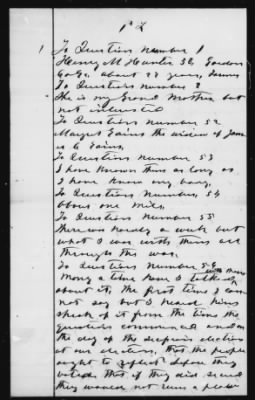 1
To Question number 1
Henry M Hunter 32 Gordon
Co Ga. about 28 years, farmer
To Question number 2
She is my Grand Mother but
not interested
To Question number 52
Margret Gains the widow of Jam
es G Gains,
To Question number 53
I have known them as long as
I have know any body,
To Question number 54
About one mile,
To Question number 55
There was hardly a week but
what I was with them all
through the war,
To Question number 56
Many a time have I talked with them
about it, The first time I can
not say but I heard him
speak of it from the time the
question commenced and on
the day of the election
at our election, that the people
ought to reflect before they
voted that if they did secede
they would not run a plow